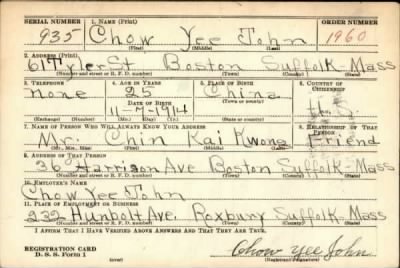 SERIAL NUMBER 1. NAME (Print) ORDER NUMBER
935 Chow Yee John 1960
(First) (Middle) (Last)
2. ADDRESS (Print)
61 Tyler St Boston Suffolk Mass
(Number and street or R. F. D. number) (Town) (County) (State)
3. TELEPHONE 4. AGE IN YEARS 5. PLACE OF BIRTH 6. COUNTRY OF CITIZENSHIP
none 25 China
DATE OF BIRTH (Town or county)
11-7-1914 U.S.
(Exchange) (Number) (Mo.) (Day) (Yr.) (State or country)
7. NAME OF PERSON WHO WILL ALWAYS KNOW YOUR ADDRESS 8. RELATIONSHIP OF THAT PERSON
Mr. Chin Kai Kwong Friend
(Mr., Mrs., Miss) (First) (Middle) (Last)
9. ADDRESS OF THAT PERSON
36 Harrison Ave Boston Suffolk Mass
(Number and street or R. F. D. number) (Town) (County) (State)
10. EMPLOYER'S NAME
Chow Yee John
11. PLACE OF EMPLOYMENT OR BUSINESS
232 Hunbolt Ave. Roxbury Suffolk Mass
(Number and street or R. F. D. number) (Town) (County) (State)
I AFFIRM THAT I HAVE VERIFIED ABOVE ANSWERS AND THAT THEY ARE TRUE.
REGISTRATION CARD
D. S. S. Form 1 (over) Chow Yee John
(Registrant's signature)